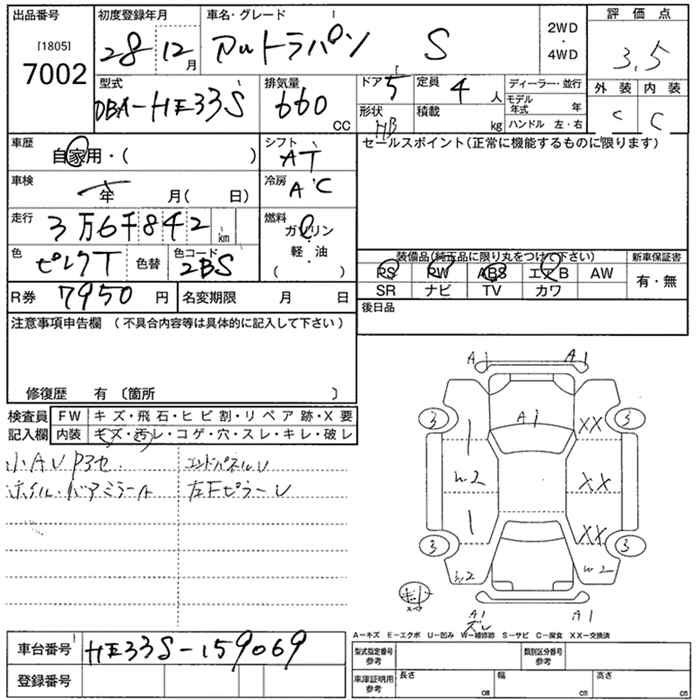 出品番号 初度登録年月 車名・グレード 2WD・4WD 評価点
[1805]
7002 28 12月 アルトラパン S 3,5
型式 排気量 ドア 5 定員 4 人 ディーラー・並行 外装 内装
DBA-HE33S 660 CC 形状 HB 積載 kg モデル年式 年 C C
ハンドル 左・右
車歴 自家用・( ) シフト AT セールスポイント(正常に機能するものに限ります)
車検 年 月( 日) 冷房 AC
走行 3万6千842 km 燃料 ガソリン
軽・油
( )
色 ピンクT 色替 色コード 2BS 装備品(純正品に限り丸をつけて下さい) 新車保証書
PS PW ABS エアB AW 有・無
SR ナビ TV カワ
R券 7950 円 名変期限 月 日 後日品
注意事項申告欄 (不具合内容等は具体的に記入して下さい)
修復歴 有 〔箇所 〕
検査員 FW キズ・飛石・ヒビ割・リペア跡・X要
記入欄 内装 キズ・汚レ・コゲ・穴・スレ・キレ・破レ
小AU P3セ エンドパネルU
ホイル・バアミラーA 左Fピラーレ
A1 A1
3 A1 XX 3
W2 XX
3 XX 3
W2 W2
A1 A1
ズレ
A-キズ E-エクボ U-凹み W-補修跡 S-サビ C-腐食 XX-交換済
車台番号 HE33S-159069
登録番号
型式指定番号 参考 類別区分番号 参考
車庫証明用 参考 長さ cm 幅 cm 高さ cm